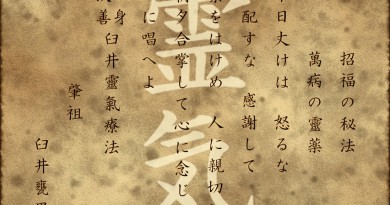 招福の秘法
萬病の靈薬
日丈けは 怒るな
配すな 感謝して
をはけめ 人に親切
夕合掌して心に念じ
に唱へよ
身
善
臼井靈氣療法
肇祖
臼井甕
靈氣